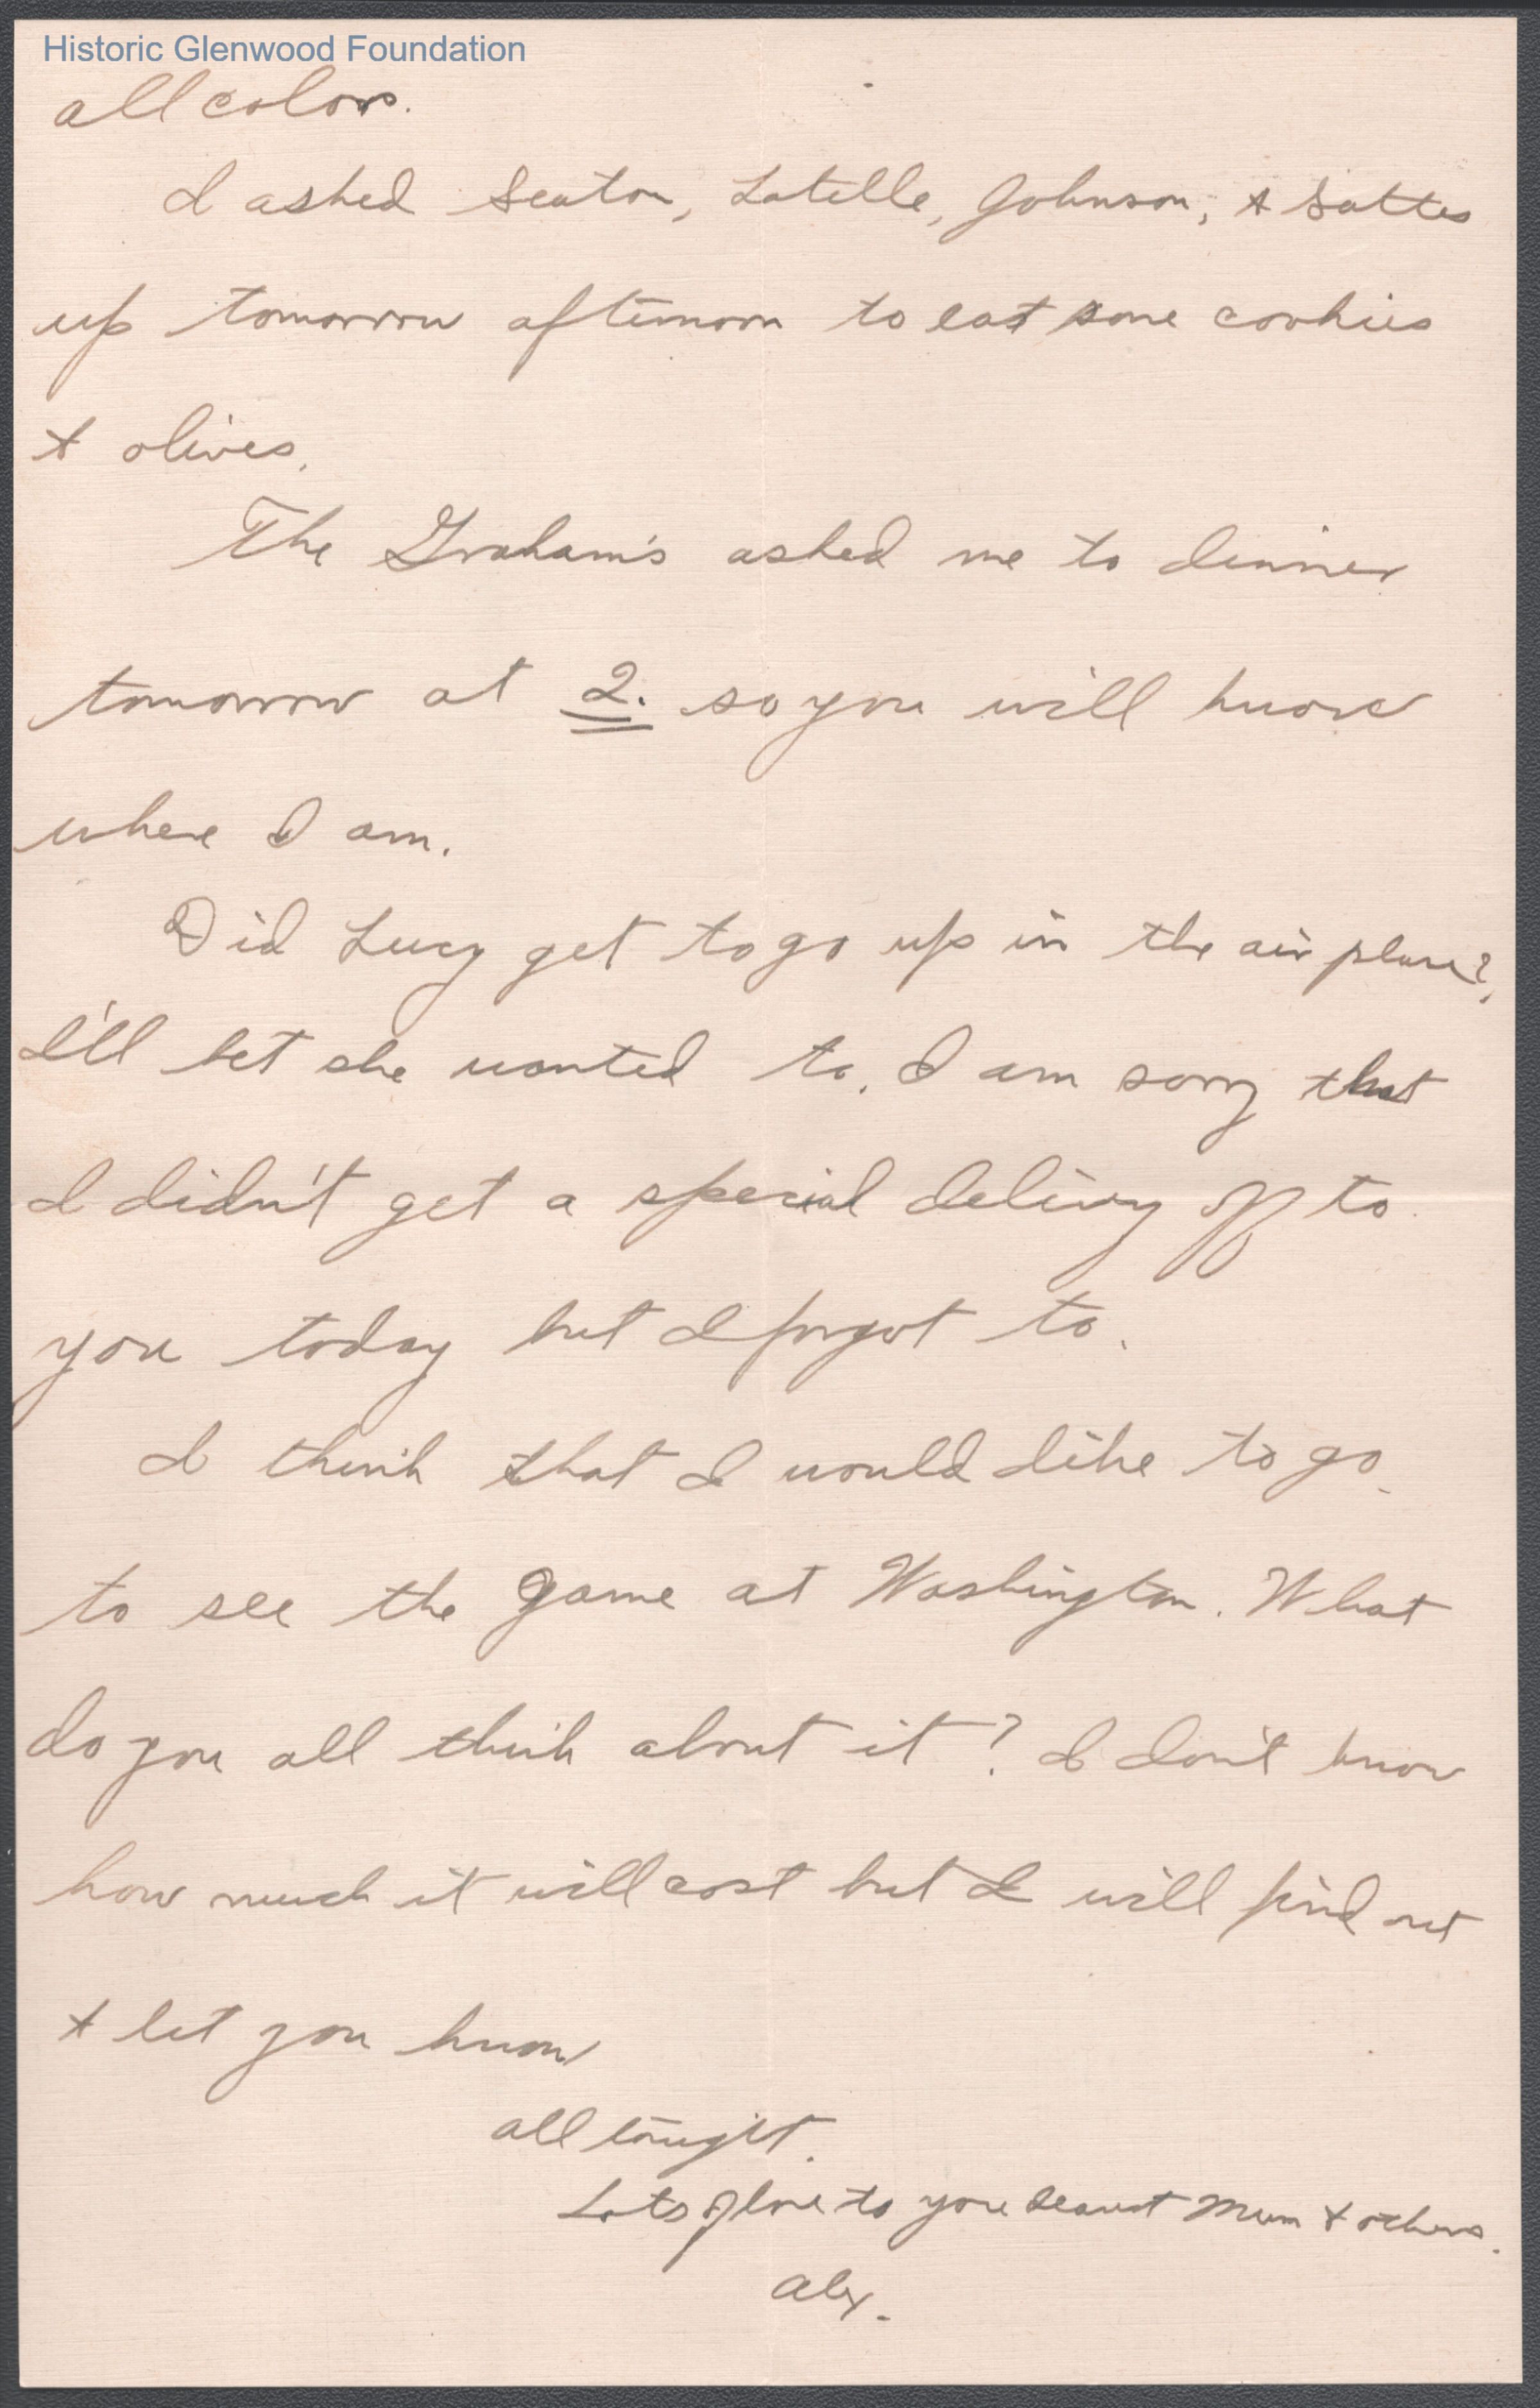 Historic Glenwood Foundation
all colors.
I asked Seaton, Latelle, Johnson, & Sattes
up tomorrow afternoon to eat some cookies
& olives.
The Graham's asked me to dinner
tomorrow at 2. so you will know
where I am.
Did Lucy get to go up in the air plane?
I'll bet she wanted to. I am sorry that
I didn't get a special delivry off to
you today but I forgot to.
I think that I would like to go
to see the game at Washington. What
do you all think about it? I don't know
how much it will cost but I will find out
& let you know
all tonight.
Lots of love to you dearest Mum & others.
Alex.